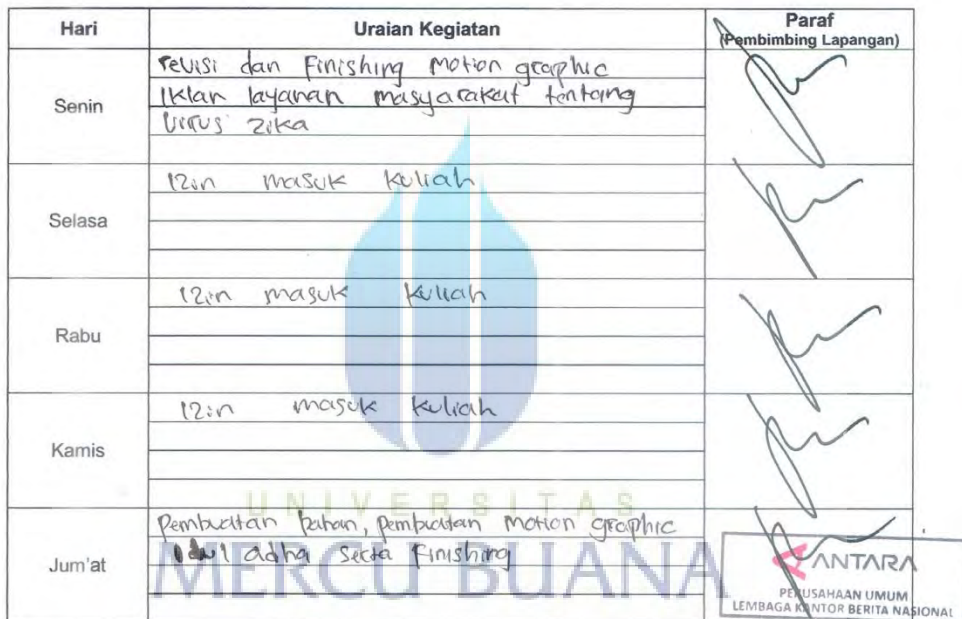 Hari Uraian Kegiatan Paraf
(Pembimbing Lapangan)
Senin
revisi dan Finishing motion graphic
Iklan layanan masyarakat tentang
Virus Zika
Selasa
Izin masuk kuliah
Rabu
Izin masuk kuliah
Kamis
Izin masuk kuliah
UNIVERSITAS
MERCU BUANA
Jum'at
Pembuatan bahan, pembuatan motion graphic
Idul adha serta Finishing
ANTARA
PERUSAHAAN UMUM
LEMBAGA KANTOR BERITA NASIONAL